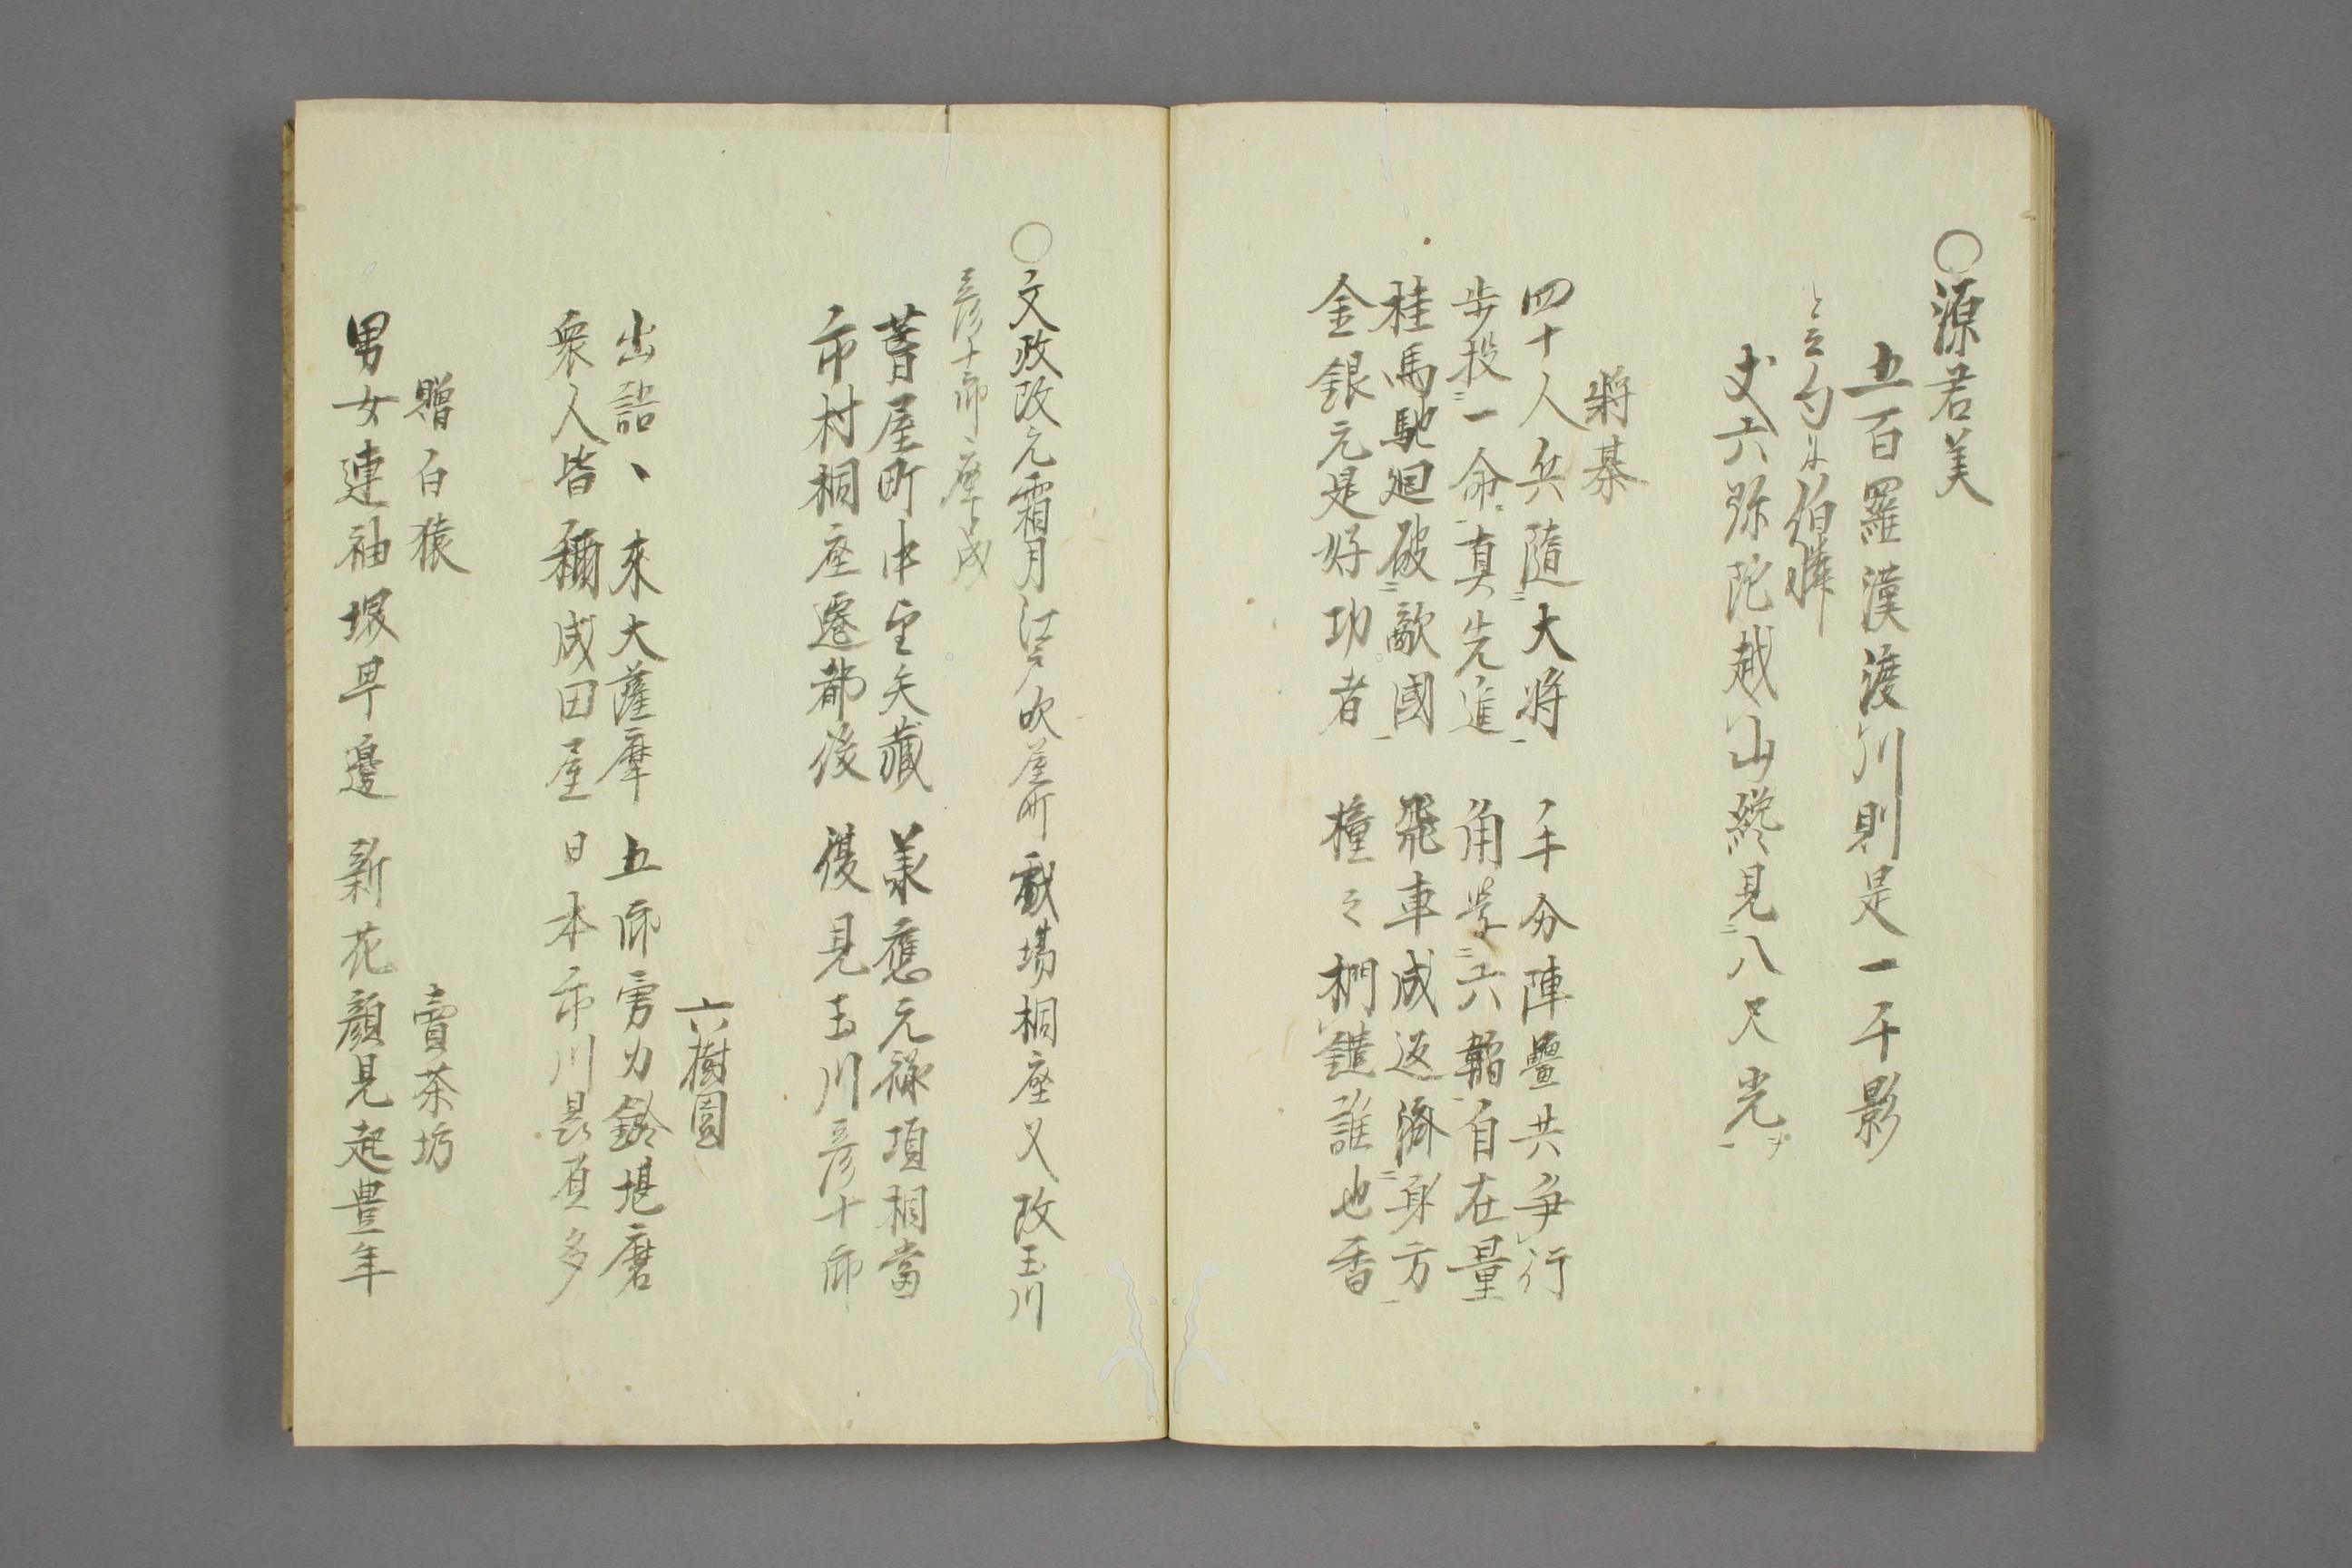 ○源君美
五百羅漢渡川則是一千影
と云句は伯驊
丈六弥陀越山纔見八尺光
将棊
四十人兵隨大将　手分陣疊共争行
歩投一命真先進　角掌六韜自在量
桂馬馳廻破敵國　飛車成返済身方
金銀元是好功者　橦之椚鑓誰也香
○文政改元霜月江戸吹屋町戯場桐座又改玉川
彦十郎座成
葺屋町中空矢藏　兼應元禄項相當
市村桐座遷都後　復見玉川彦十郎
六樹園
出語丶來大薩摩　五郎勇力鏃堪磨
衆人皆稱成田屋　日本市川最負多
贈白猿　賣茶坊
男女連袖堀早邊　新花顔見起豊年